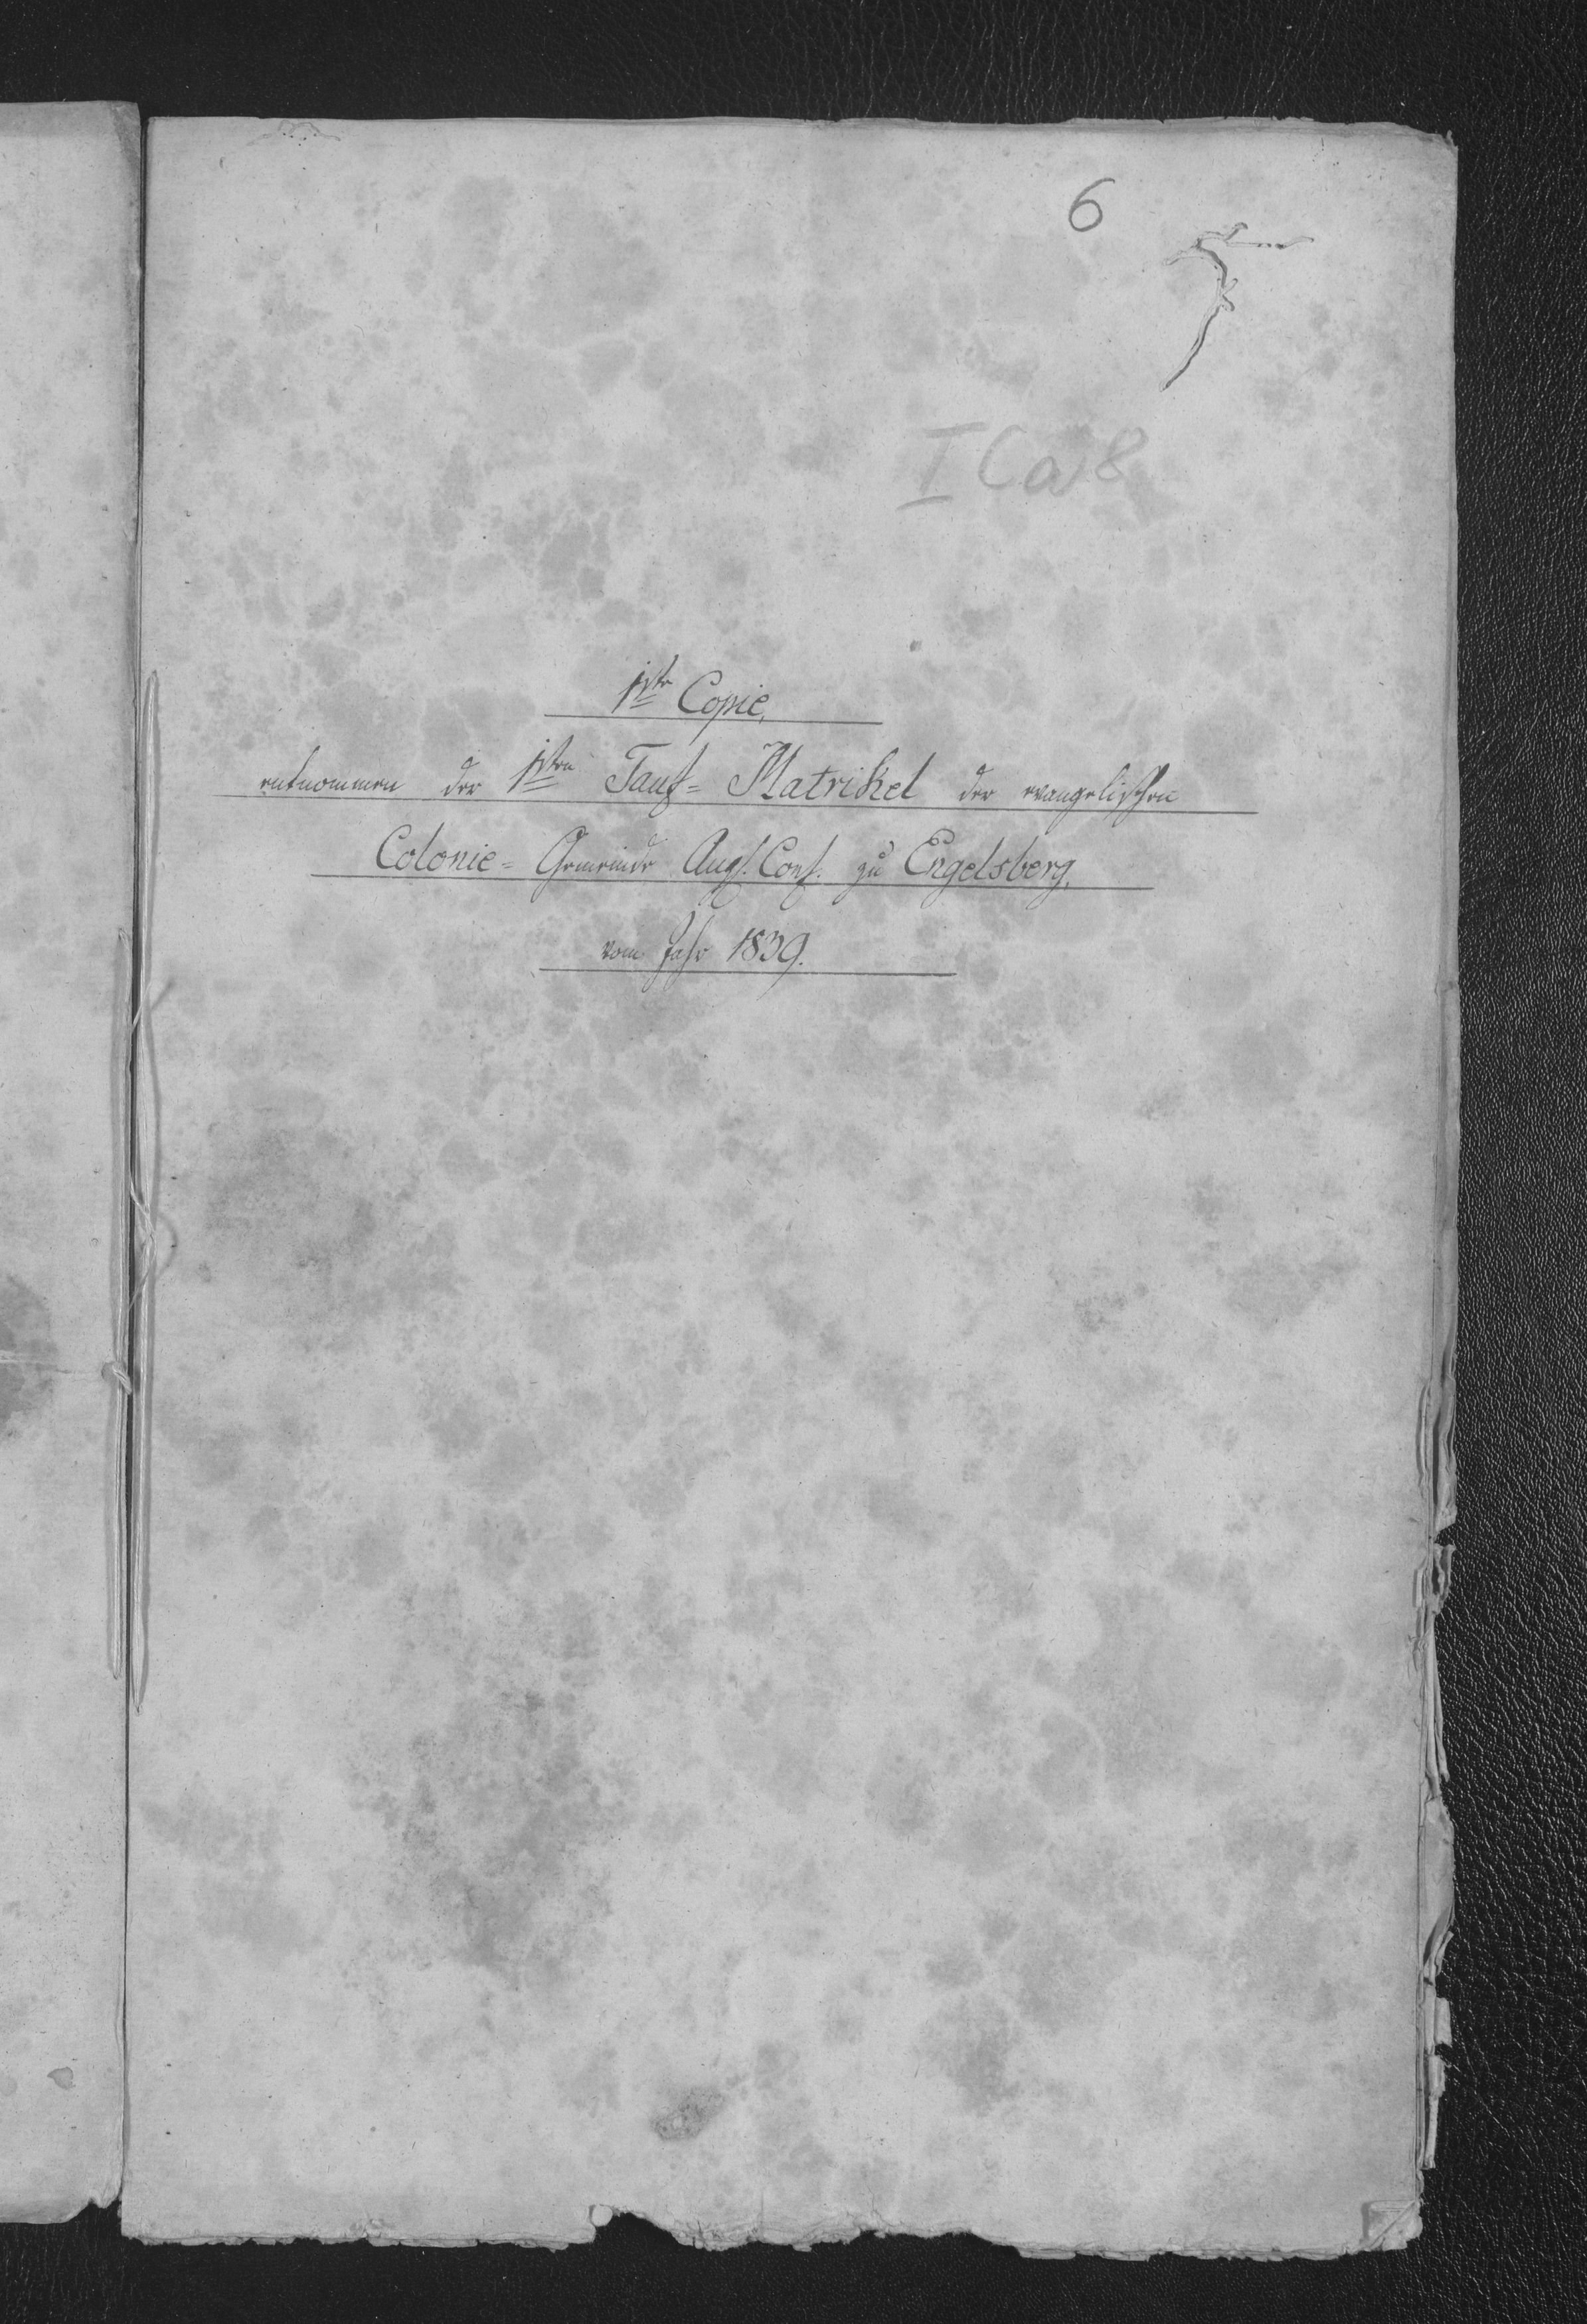 6
I Ca 8
1ste Copie,
entnommen der 1sten Tauf= Matrikel der evangelischen
Colonie= Gemeinde Augs. Conf. zu Engelsberg,
vom Jahr 1839.